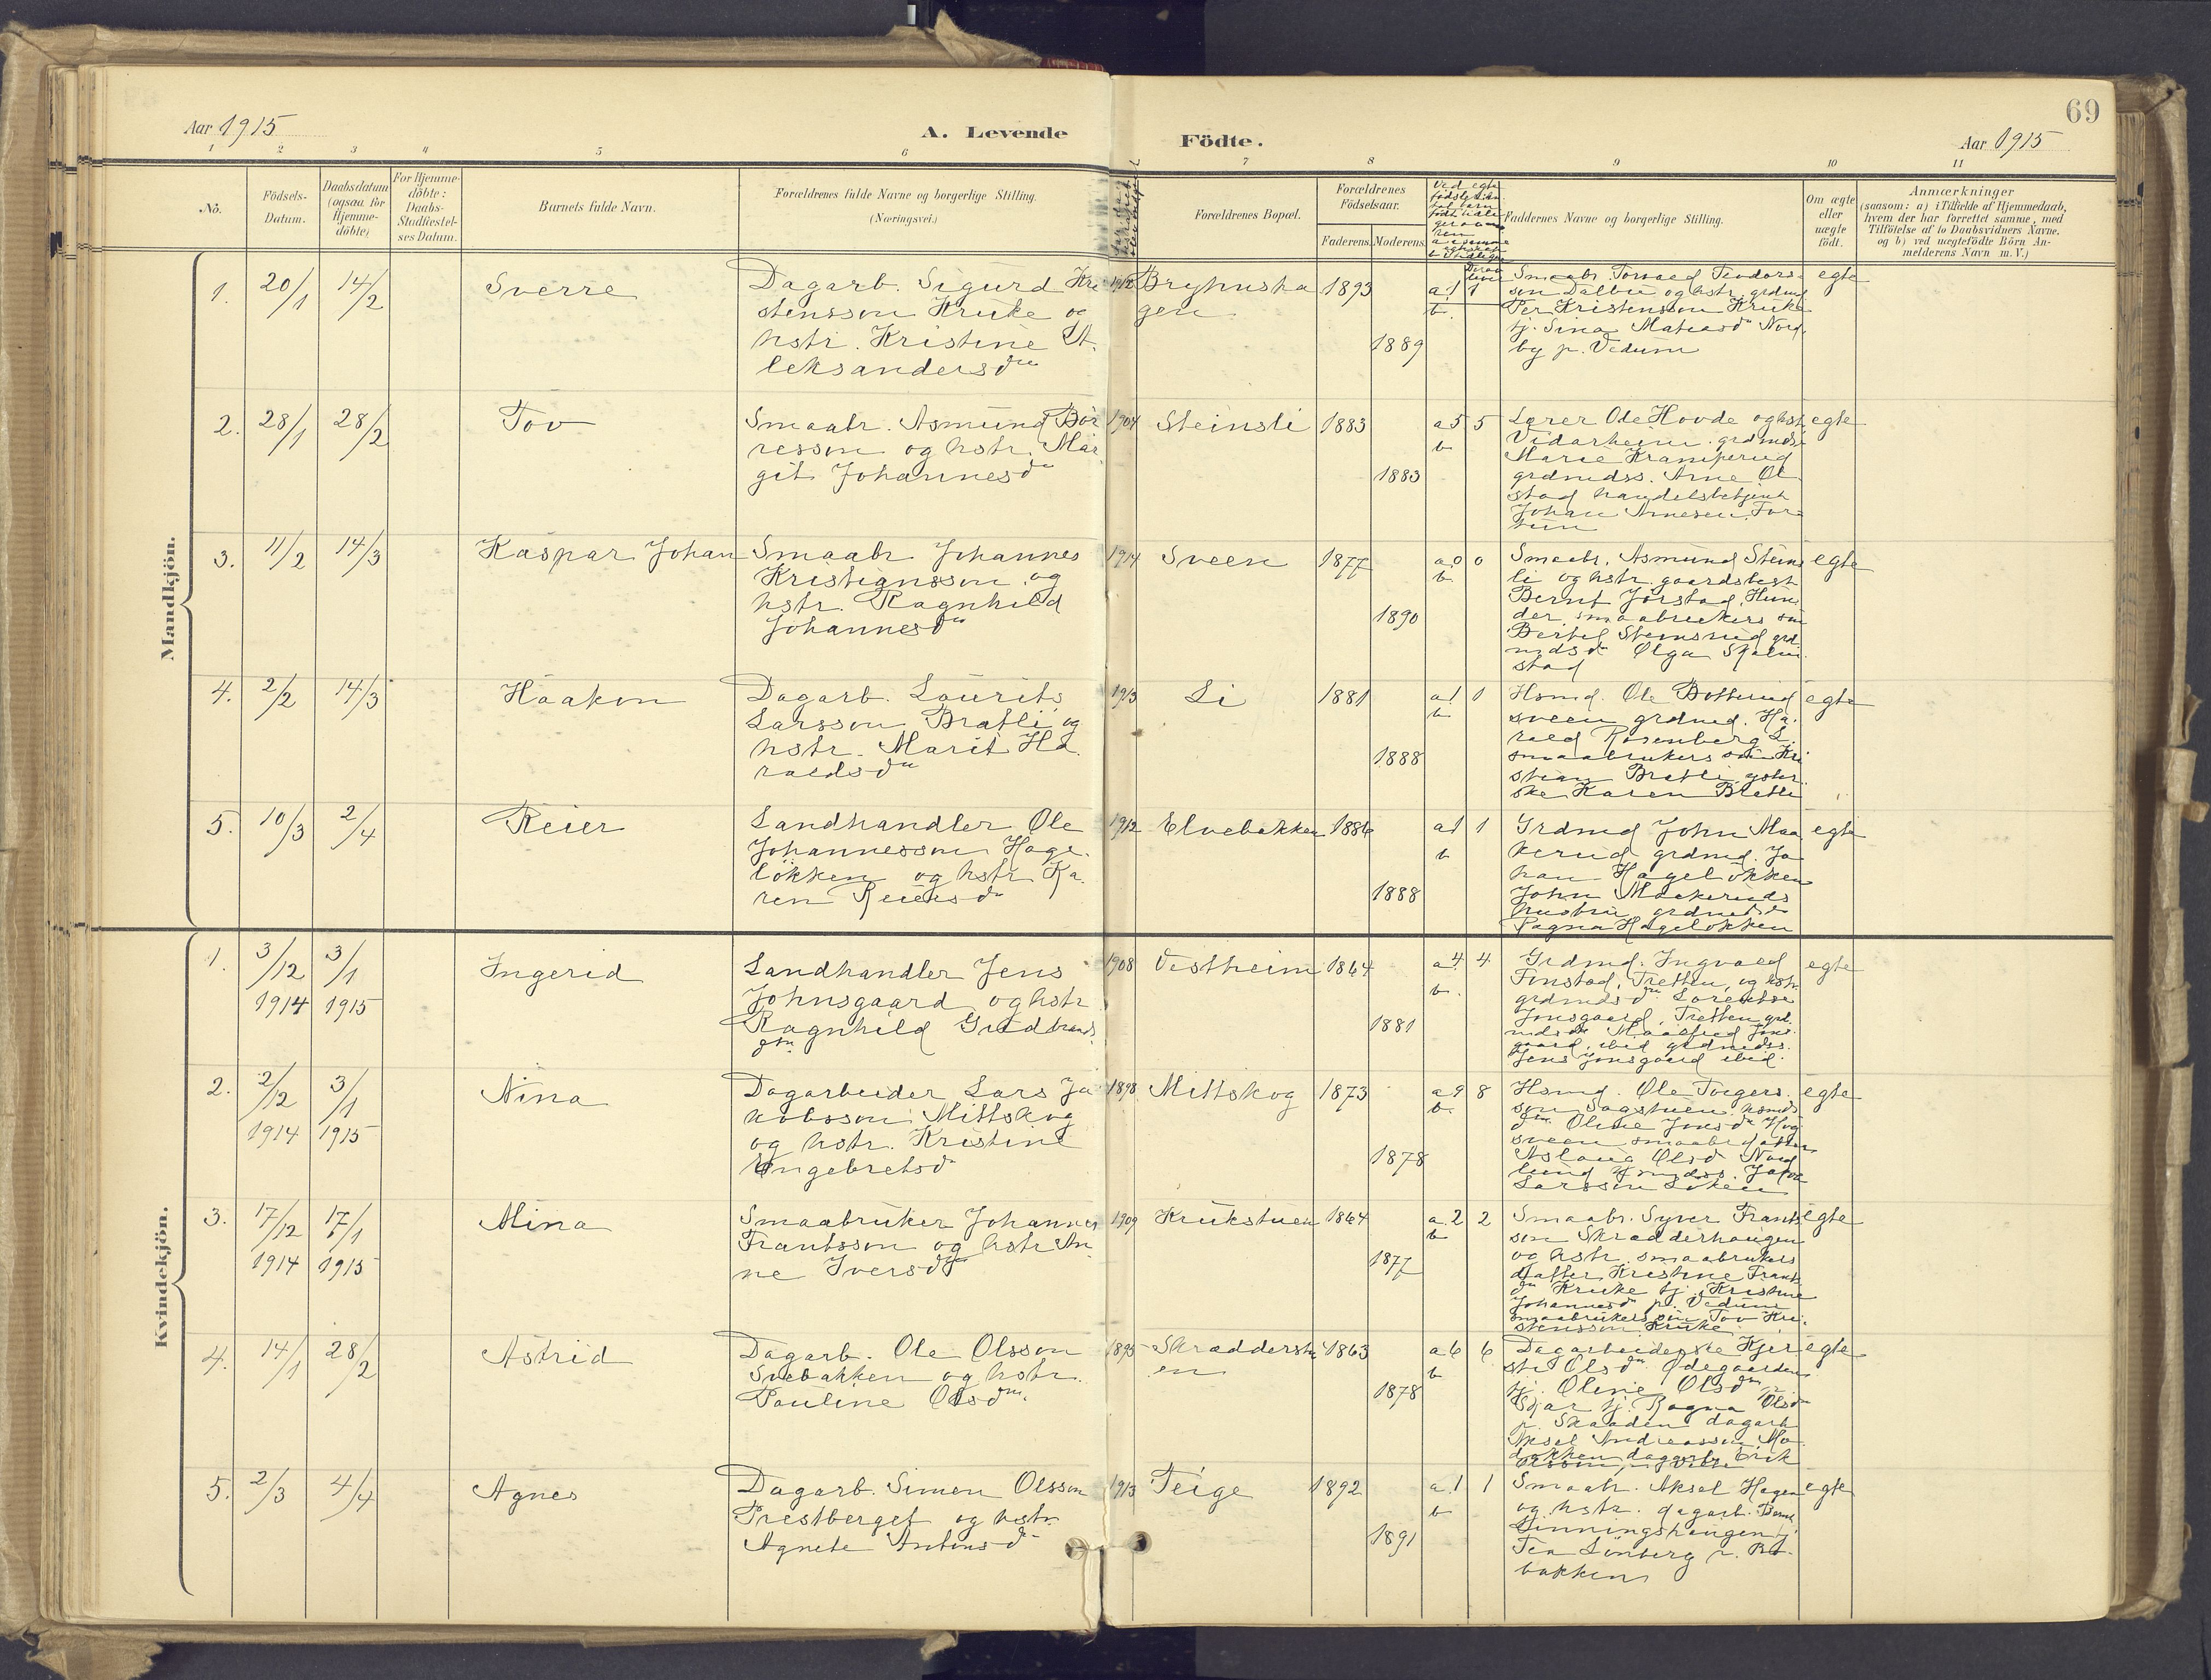 69
Aar 1915
A. Levende
Födte.
Aar 1915
1 2 3 4 5 6 7 8 9 10 11
No.
Födsels-
Datum.
Daabsdatum
(ogsaa for
Hjemme-
döbte)
For Hjemme-
döbte:
Daabs-
Stadfæstel-
ses Datum.
Barnets fulde Navn.
Forældrenes fulde Navne og borgerlige Stilling.
(Næringsvei.)
Forældrenes Bopæl.
Forældrenes
Födselsaar.
Faderens. Moderens.
Faddernes Navne og borgerlige Stilling.
Om ægte
eller
uægte
födt.
Anmærkninger
(saasom: a) i Tilfælde af Hjemmedaab,
hvem der har forrettet samme, med
Tilföielse af to Daabsvidners Navne.
og b) ved uægtefödte Börn An-
melderens Navn m. V.)
Mandkjön.
1. 20/1 14/2 Sverre
Dagarb. Sigurd Kri
stensson Kruke og
hstr. Kristine A.
leksandersdtr
1912 Bryhnsha
gen
1893
1889
a.1 1
b.
Smaabr. Torvald Teodors-
son Dalbu og hstr. grdmd
Per Kristensson Kruke
tj. Sina Mateasdtr Nord
by p. Vedum
egte
2. 28/1 28/2 Tov
Smaabr. Asmund Bör
resson og hstr. Mar
git Johannesdtr
1904 Steinsli 1883
1883
a5 5
b
Lærer Ole Hovde og hstr
Vidarheim grdmds.
Marie Kramperud
grdmdss. Arne Ol
stad handelsbetjent
Johan Arnesen For
tun
egte
3. 11/2 14/3 Kaspar Johan
Smaabr Johannes
Kristiansson og
hstr. Ragnhild
Johannesdtr
1914 Sveen 1877
1890
a0 0
b.
Smaabr. Asmund Steins
li og hstr. gaardsbest
Bernt Jörstad, Hun
der, smaabrukers sön
Bertel Stemsrud grd
mdsdtr Olga Skalm
stad
egte
4. 2/2 14/3 Haakon
Dagarb. Laurits
Larsson Bratli og
hstr. Marit Ha
raldsdtr
1913 Li 1881
1888
a1 1
b
Hsmd. Ole Botterud
sveen grdmd. Ha.
rald Rosenberg L.
smaabrukers sön Kri
stian Bratli
ske Karen Bratli
egte
5. 10/3 2/4 Reier
Landhandler Ole
Johannesson Hage
lökken og hstr. Ka
ren Reiersdtr
1912 Elvebakken 1886
1888
a1 1
b
Grdmd John Maa
kerud grdmd. Jo
han Hagelökken
John Maakeruds
hustru, grdmdsdtr
Ragna Hagelökken
egte
Kvindekjön.
1. 3/12 3/1 Ingerid
1914 1915
Landhandler Jens
Johnsgaard og hstr
Ragnhild Gudbrands
dtr.
1908 Vestheim 1864
1881
a4 4
b.
Grdmd. Ingvald
Finstad, Tretten, og hstr
grdmdsdtr Lorentse
Jonsgaard, Tretten grd
mdsdtr Maalfrid Jons
gaard, ibid grdmdss.
Jens Jonsgaard ibid.
egte
2. 2/12 3/1 Nina
1914 1915
Dagarbeider Lars Ja
kobsson Mittskog
og hstr. Kristine
Engebretsdtr
1898 Mittskog 1873
1878
a9 8
b.
Hsmd. Ole Torgers.
son Sagstuen. hsmds
dtr. Oline Jonsdtr Haug
sveen smaabr.datter
Aslaug Olsdtr Nord
lund
Larsson Löken
egte
3. 17/12 17/1 Mina
1914 1915
Smaabruker Johannes
Frantsson og hstr An
ne Iversdtr
1909 Krukstuen 1864
1877
a.2 2
b
Smaabr. Syver Frants
son Skrædderhaugen
og hstr. smaabrukers
datter Kristine Frants
dtr Kruke tj. Kristine
Johannesdtr p. Vedum
smaabrukers sön Tov Kri
stensson Kruke
egte
4. 14/1 28/2 Astrid
Dagarb. Ole Olsson
Svebakken og hstr.
Pauline Olsdtr.
1895 Skrædderstu
en
1863
1878
a6 6
b
Dagarbeiderske Kjer
sti Olsdtr Ödegaarden
tj. Oline Olsdtr p.
Skar tj. Ragna Olsdtr
p. Skaaden dagarb
Aksel Andreasson Mo
dokken dagarb. Erik
Olsson
egte
5. 2/3 4/4 Agnes
Dagarb. Simen Olsson
Prestberget og hstr.
Agnete Antonsdtr
1913 Teige 1892
1891
a.1 1
b
Smaabr. Aksel Hagen
og hstr. dagarb. Bernt
Linningshaugen tj.
Tea Lönberg p. Bö-
bakken
egte